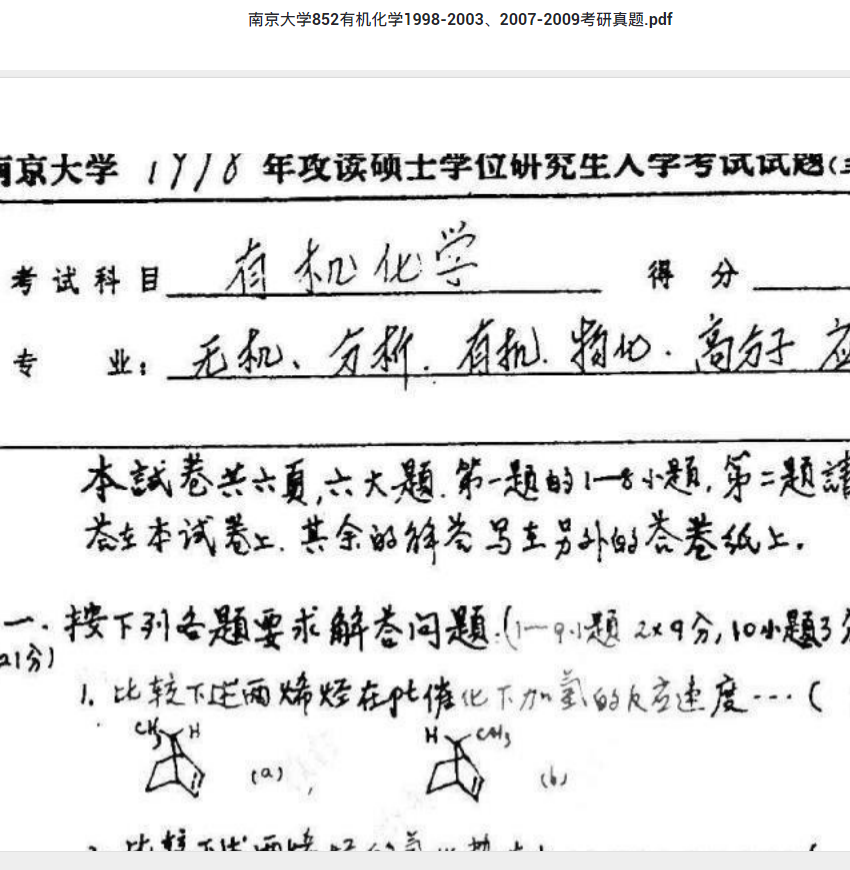 南京大学852有机化学1998-2003、2007-2009考研真题.pdf
南京大学 1998 年攻读硕士学位研究生入学考试试题(
考试科目 有机化学 得 分
专 业: 无机、分析.有机.物化.高分子 应
本試卷共六頁,六大题.第一题的1—8小题,第二题請
答在本试卷上.其余的解答写在另外的答卷纸上。
一.按下列各题要求解答问题.(1—9小题 2×9分,10小题3分
21分)
1. 比较下述两烯烃在pt催化下加氢的反应速度···(
CH3 H (a) H CH3 (b)
比较下述两烯烃的氢化热